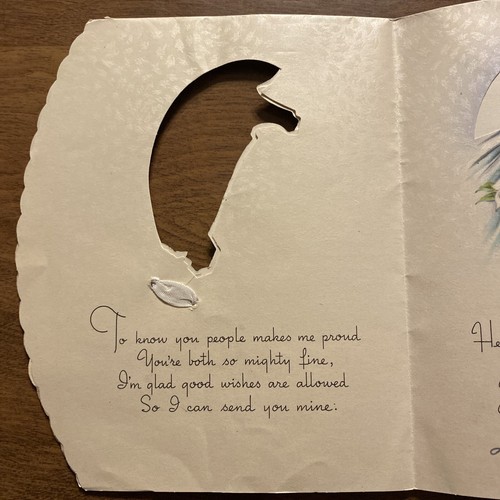 To know you people makes me proud
You're both so mighty fine,
I'm glad good wishes are allowed
So I can send you mine:
He